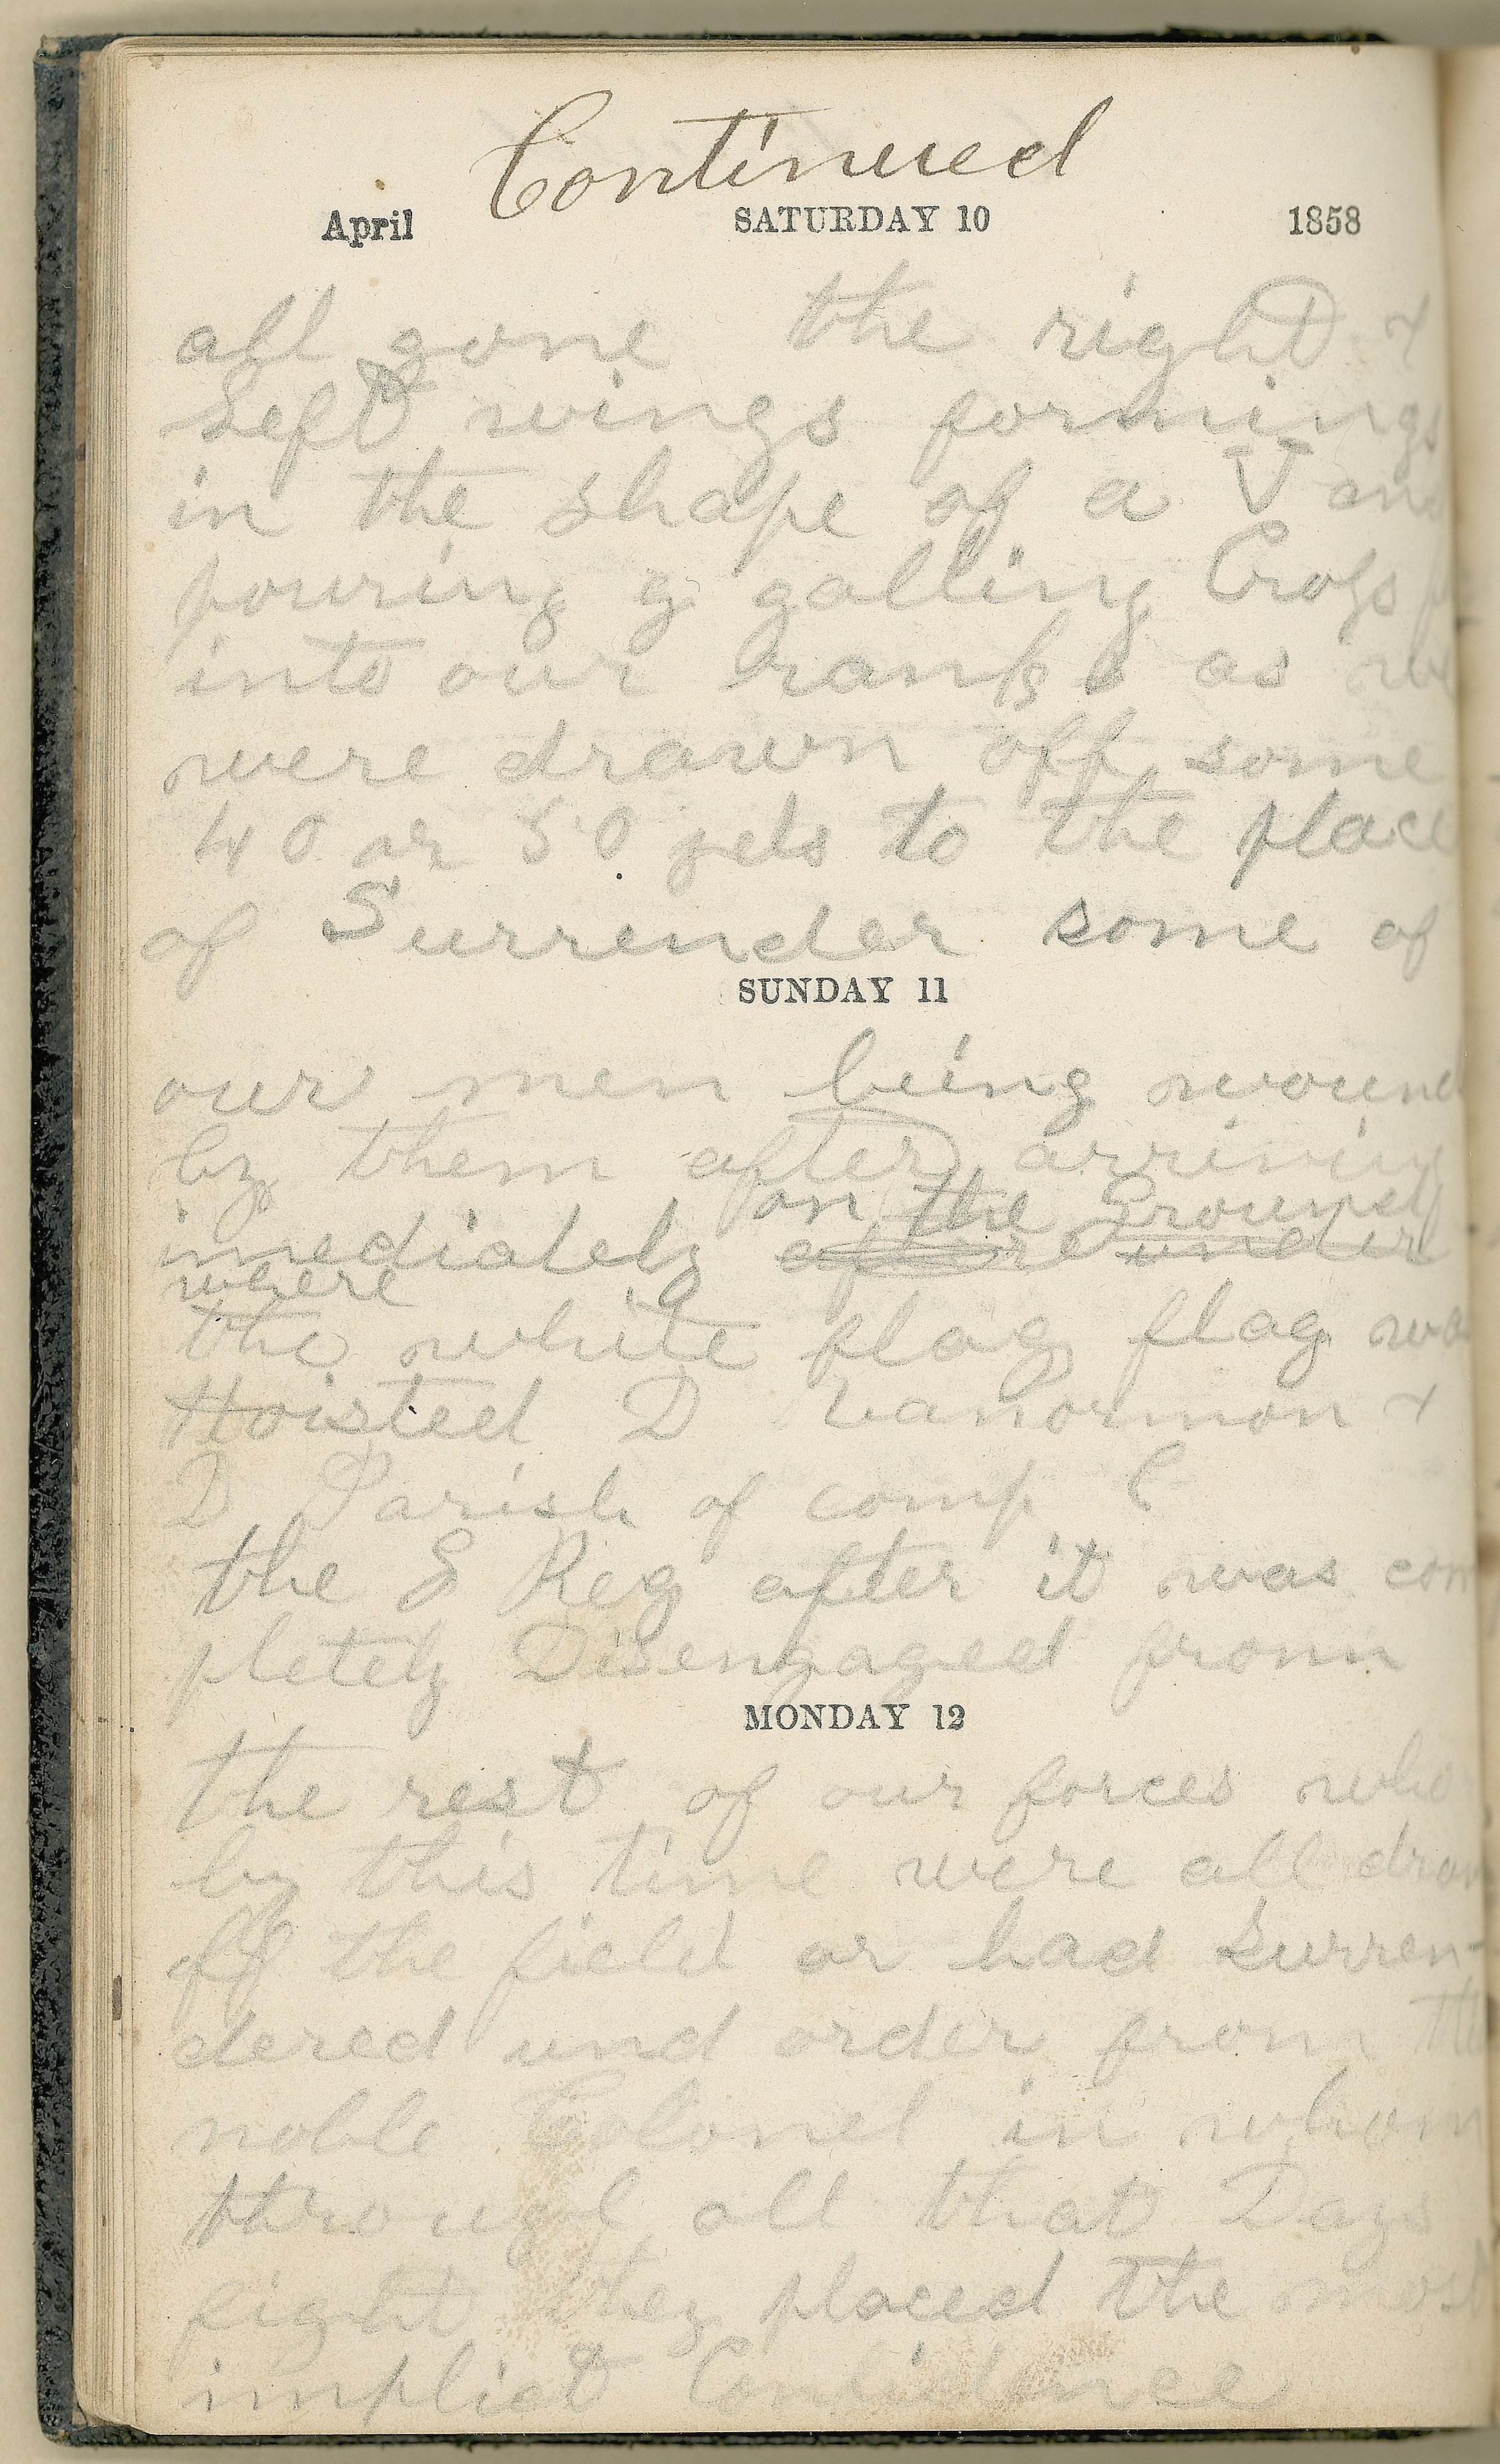 Continued
April SATURDAY 10 1858
all gone the right &
Left wings formings
in the shape of a V an
pouring a galling Cross
into our ranks as we
were drawn off some
40 or 50 yds to the place
of Surrender some of
SUNDAY 11
our men being wound
by them after arriving
on the Ground
imediately after under
where
the white flag flag wa
Hoisted D Vanormon &
D Parish of comp C
the 8 Reg after it was com
pletely Disengaged fromn
MONDAY 12
the rest of our forces who
by this time were all draw
off the field or had Surren-
dered und order from th
noble Colonel in whom
througl all that Days
fight they placed the most
implict Confidence